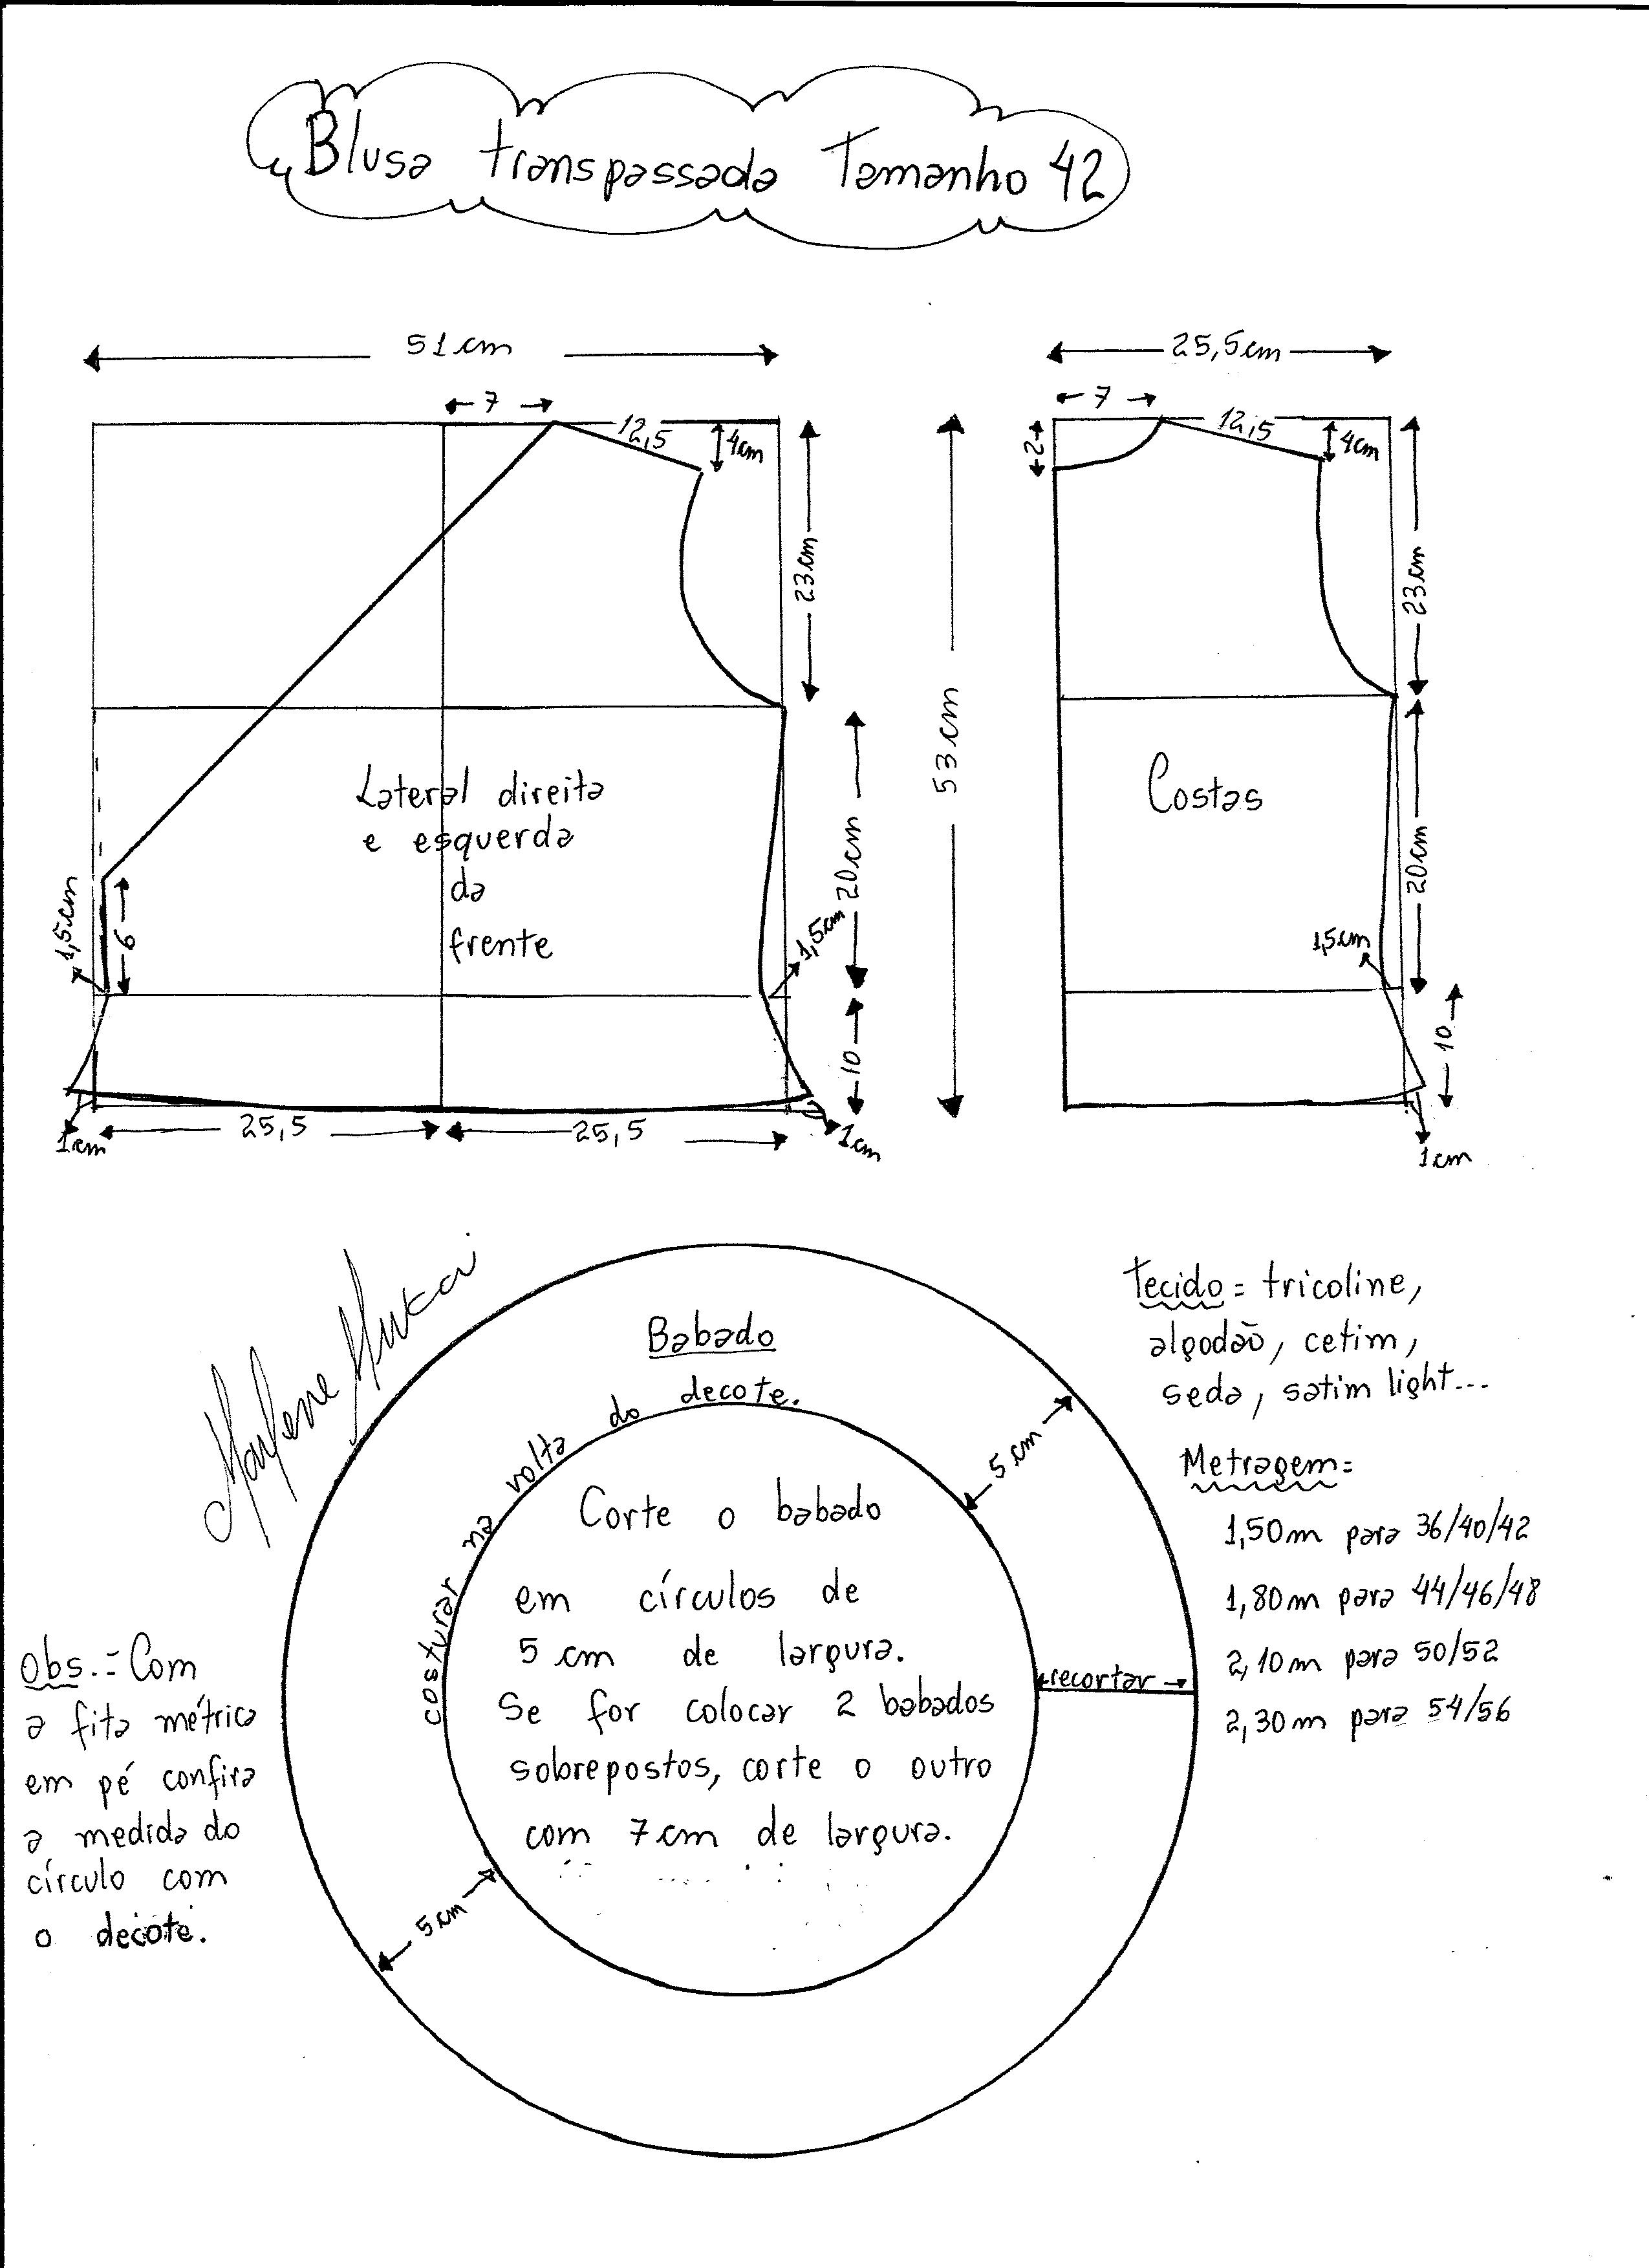 Blusa transpassada Tamanho 42
51 cm
7
12,5
4cm
23cm
20cm
1,5cm
10
1cm
25,5
25,5
1cm
1,5cm
6
Lateral direita
e esquerda
da
frente
53 cm
25,5cm
7
12,5
2
4cm
23cm
20cm
1,5cm
10
1cm
Costas
Marlene Mukai
Babado
costurar na volta do decote.
5 cm
Corte o babado
em círculos de
5 cm de largura.
Se for colocar 2 babados
sobrepostos, corte o outro
com 7cm de largura.
recortar
5 cm
Tecido = tricoline,
algodão, cetim,
seda, satim light...
Metragem =
1,50m para 36/40/42
1,80m para 44/46/48
2,10m para 50/52
2,30m para 54/56
Obs.:- Com
a fita métrica
em pé confira
a medida do
círculo com
o decote.